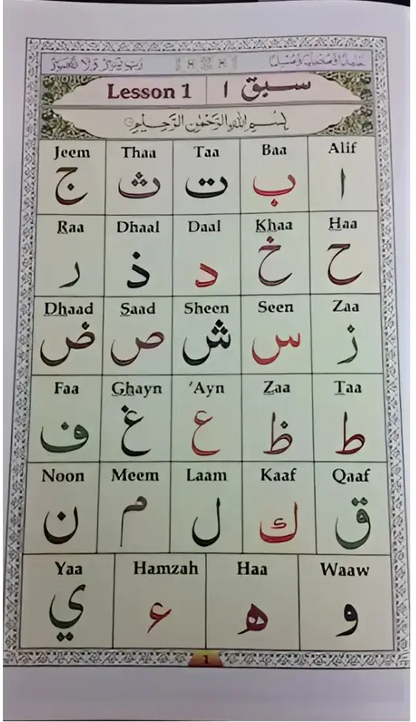 رب يسر ولا تعسر
Lesson 1 سبق ا
بسم الله الرحمن الرحيم
Jeem Thaa Taa Baa Alif
ج ث ت ب ا
Raa Dhaal Daal Khaa Haa
ر ذ د خ ح
Dhaad Saad Sheen Seen Zaa
ض ص ش س ز
Faa Ghayn ’Ayn Zaa Taa
ف غ ع ظ ط
Noon Meem Laam Kaaf Qaaf
ن م ل ك ق
Yaa Hamzah Haa Waaw
ي ء ه و
1